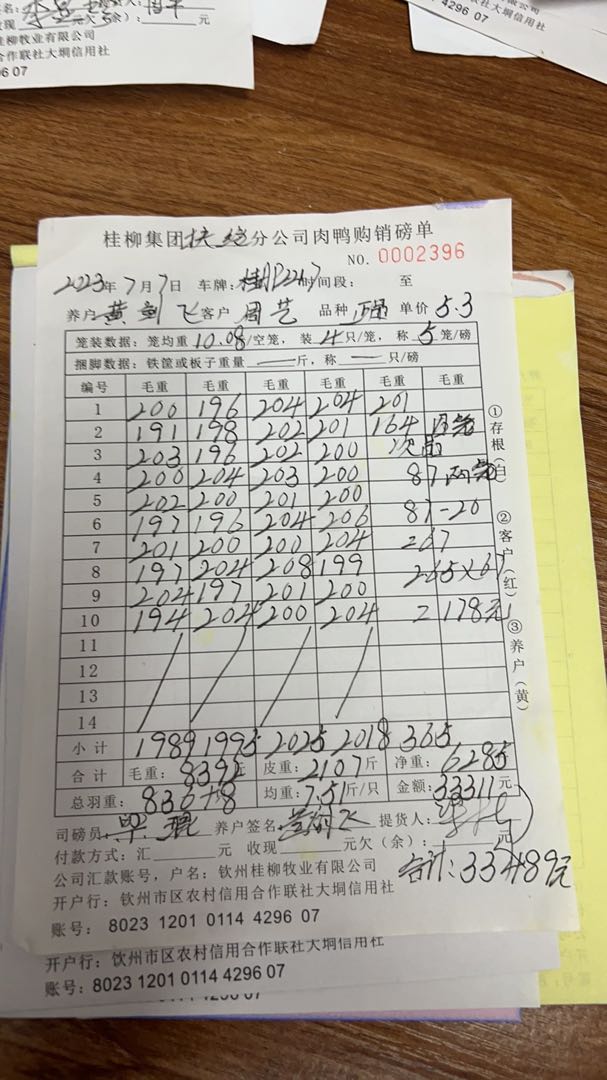 现
元欠(余): 元
桂柳牧业有限公司
合作联社大垌信用社
96 07
4296 07
大垌信用社
桂柳集团扶绥分公司肉鸭购销磅单
NO. 0002396
2023年7月7日 车牌: 时间段: 至
养户 黄剑飞 客户 周艺 品种 单价 5.3
笼装数据: 笼均重 10.08/空笼, 装 4 只/笼, 称 5 笼/磅
捆脚数据: 铁筐或板子重量 — 斤, 称 — 只/磅
编号 毛重 毛重 毛重 毛重 毛重 毛重
1 200 196 204 204 201
2 191 198 202 201 164
3 203 196 202 200
4 200 204 203 200 87
5 202 200 201 200
6 197 196 204 206 87-20
7 201 200 200 204 267
8 197 204 208 199
9 204 197 201 200
10 194 204 200 204 2178元
11
12
13
14
小计 1989 1995 2025 2018 365
合计 毛重: 8392 皮重: 2107斤 净重: 6285
总羽重: 836+8 均重: 7.51斤/只 金额: 33311元
司磅员 养户签名 提货人:
付款方式: 汇 元 收现 元欠(余): 元
公司汇款账号, 户名: 钦州桂柳牧业有限公司
合计: 33489元
开户行: 钦州市区农村信用合作联社大垌信用社
账号: 8023 1201 0114 4296 07
①存根(白) ②客户(红) ③养户(黄)
开户行: 钦州市区农村信用合作联社大垌信用社
账号: 8023 1201 0114 4296 07